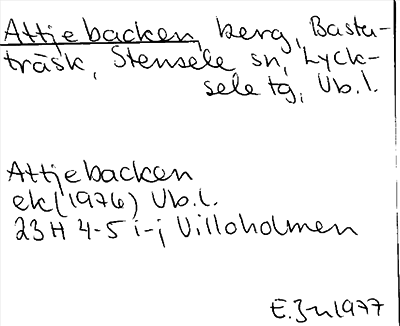 Attjebacken, berg, Bastu-
träsk, Stensele sn, Lyck-
sele tg, Vb.l.
Attjebacken
ek (1976) Vb.l.
23H 4-5 i-j Villoholmen
E.Jn 1977